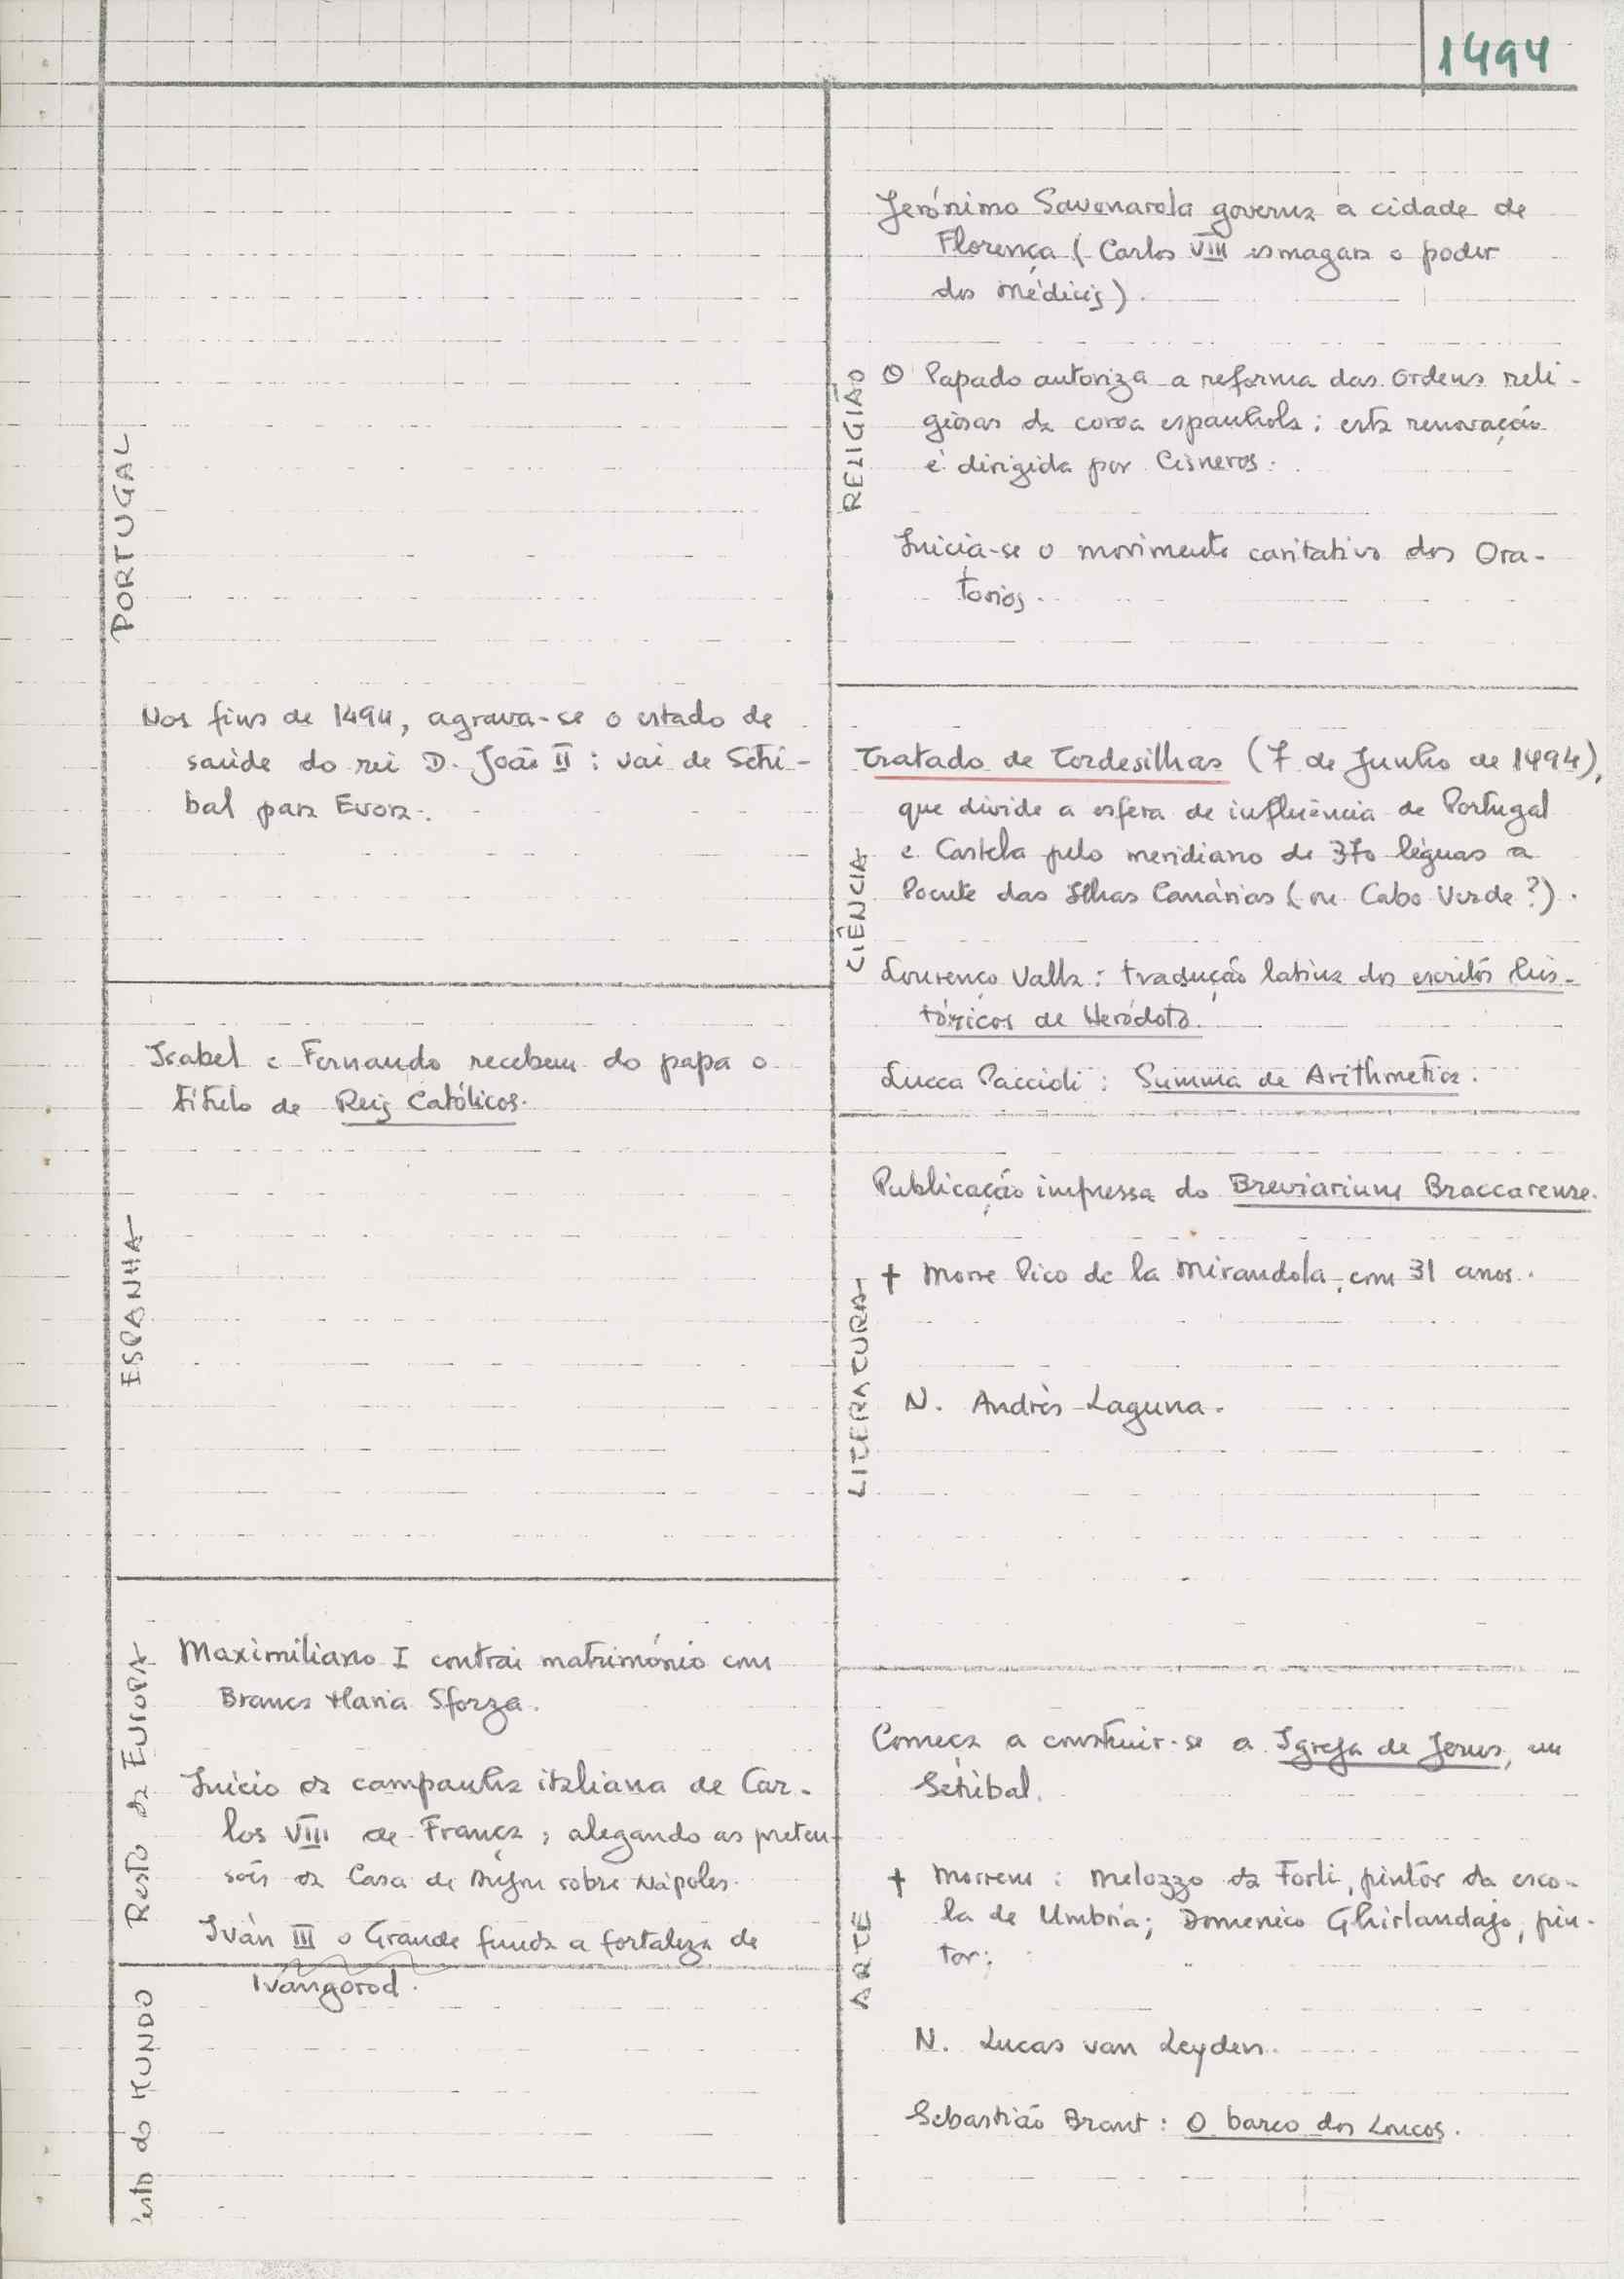 1494
PORTUGAL
Nos fins de 1494, agrava-se o estado de
saúde do rei D. João II : vai de Setú-
bal para Évora.
ESPANHA
Isabel e Fernando recebem do papa o
título de Reis Católicos.
Resto da EUROPA
Maximiliano I contrai matrimónio com
Branca Maria Sforza.
Início da campanha italiana de Car-
los VIII de França, alegando as preten-
sões da Casa de Anjou sobre Nápoles.
Iván III o Grande funda a fortaleza de
Ivangorod.
esto do MUNDO
RELIGIÃO
Jerónimo Savonarola governa a cidade de
Florença (Carlos VIII esmagara o poder
dos Médicis).
O Papado autoriza a reforma das ordens reli-
giosas da coroa espanhola; esta renovação
é dirigida por Cisneros.
Inicia-se o movimento caritativo dos Ora-
torios.
CIÊNCIA
Tratado de Tordesilhas (7 de Junho de 1494),
que divide a esfera de influência de Portugal
e Castela pelo meridiano de 370 léguas a
Poente das Ilhas Canárias (ou Cabo Verde?).
Lourenço Valla : tradução latina dos escritos his-
tóricos de Heródoto.
Lucca Paccioli : Summa de Arithmetica.
LITERATURA
Publicação impressa do Breviarium Braccarense.
† Morre Pico de la Mirandola, com 31 anos.
N. Andrès Laguna.
ARTE
Começa a construir-se a Igreja de Jesus, em
Setúbal.
† Morrem : Melozzo da Forli, pintor da esco-
la de Umbria; Domenico Ghirlandajo, pin-
tor;
N. Lucas van Leyden.
Sebastião Brant : O barco dos Loucos.